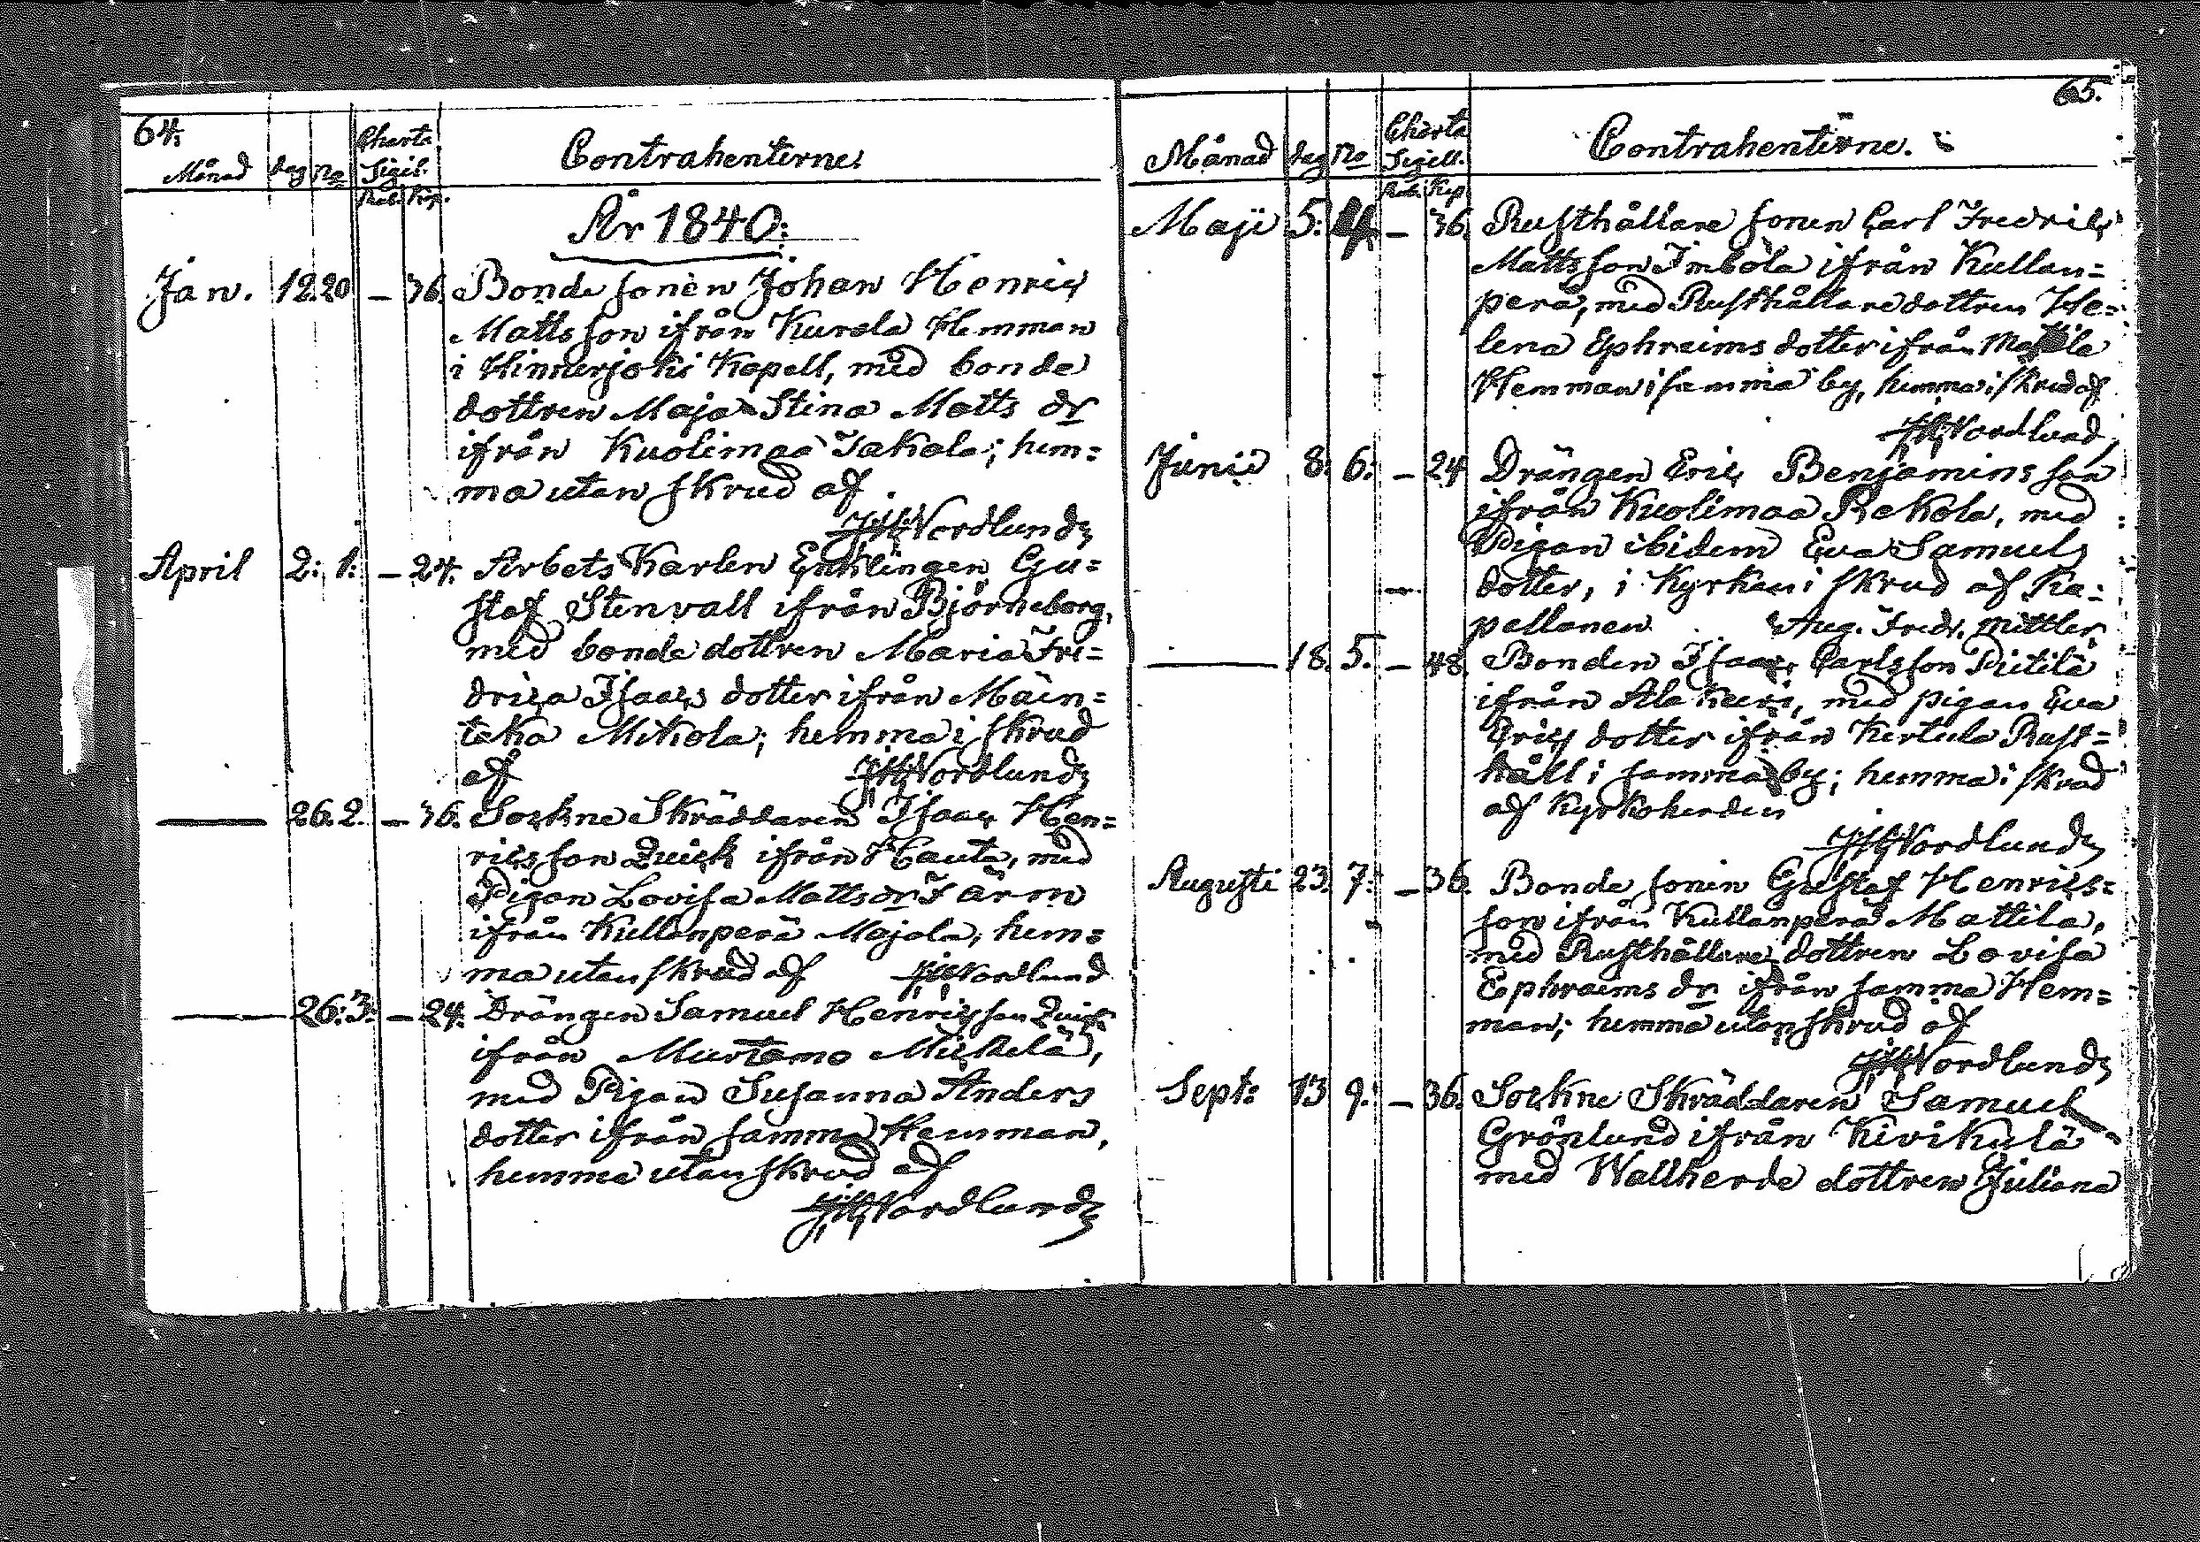 64.
Månad dag No Charta Sigil. Contrahenterne.
Rub. Kop.
År 1840.
Jan. 12. 20 – 36. Bonde sonen Johan Henric
Mattsson ifrån Kurola Hemman
i Hinnerjoki Kapell, med bonde
dottren Maja Stina Matts dr
ifrån Kuolimaa Jakola; hem=
ma utan skrud af
JH Nordlund
April 2. 1. – 24. Arbets Karlen Enklingen Gu=
staf Stenvall ifrån Björneborg,
med bonde dottren Maria Fre=
drica Isaacs dotter ifrån Män=
taka Mikola; hemma i skrud
af JH Nordlund
26. 2. – 36. Sockne Skräddaren Isaac Hen=
ricsson Quick ifrån Hauta, med
Pigan Lovisa Matts dr Färm
ifrån Kullanperä Majala, hem=
ma utan skrud af JH Nordlund
26. 3. – 24. Drängen Samuel Henricsson Quick
ifrån Murtamo Mickelä,
med Pigan Susanna Anders
dotter ifrån samma Hemman,
hemma utan skrud af
JH Nordlund
65.
Månad dag No Charta Sigill. Contrahenterne.
Rub. Kop
Maji 5. 4. – 36. Rusthållare sonen Carl Fredric
Mattsson Imbola ifrån Kullan=
perä, med Rusthållare dottren He=
lena Ephraims dotter ifrån
Hemman i samma by, hemma i skrud af
JH Nordlund
Junii 8. 6. – 24 Drängen Eric Benjaminsson
ifrån Kuolimaa Rekola, med
Pigan ibidem Eva Samuels
dotter, i Kyrkan i skrud af Ka=
pellanen Aug. Fredr. Mittler
18. 5. – 48. Bonden Isaac Carlsson Pietilä
ifrån Ala Keeri, med pigan Eva
Erics dotter ifrån Kertula Rust=
håll i samma by; hemma i skrud
af Kyrkoherden
JH Nordlund
Augusti 23. 7. – 36. Bonde sonen Gustaf Henrics=
son ifrån Kullanperä Mattila,
med Rusthållare dottren Lovisa
Ephraims dr ifrån samma Hem=
man; hemma utan skrud af
JH Nordlund
Sept: 13 9. – 36. Sockne Skräddaren Samuel
Grönlund ifrån Kivikylä
med Wallherde dottren Juliana